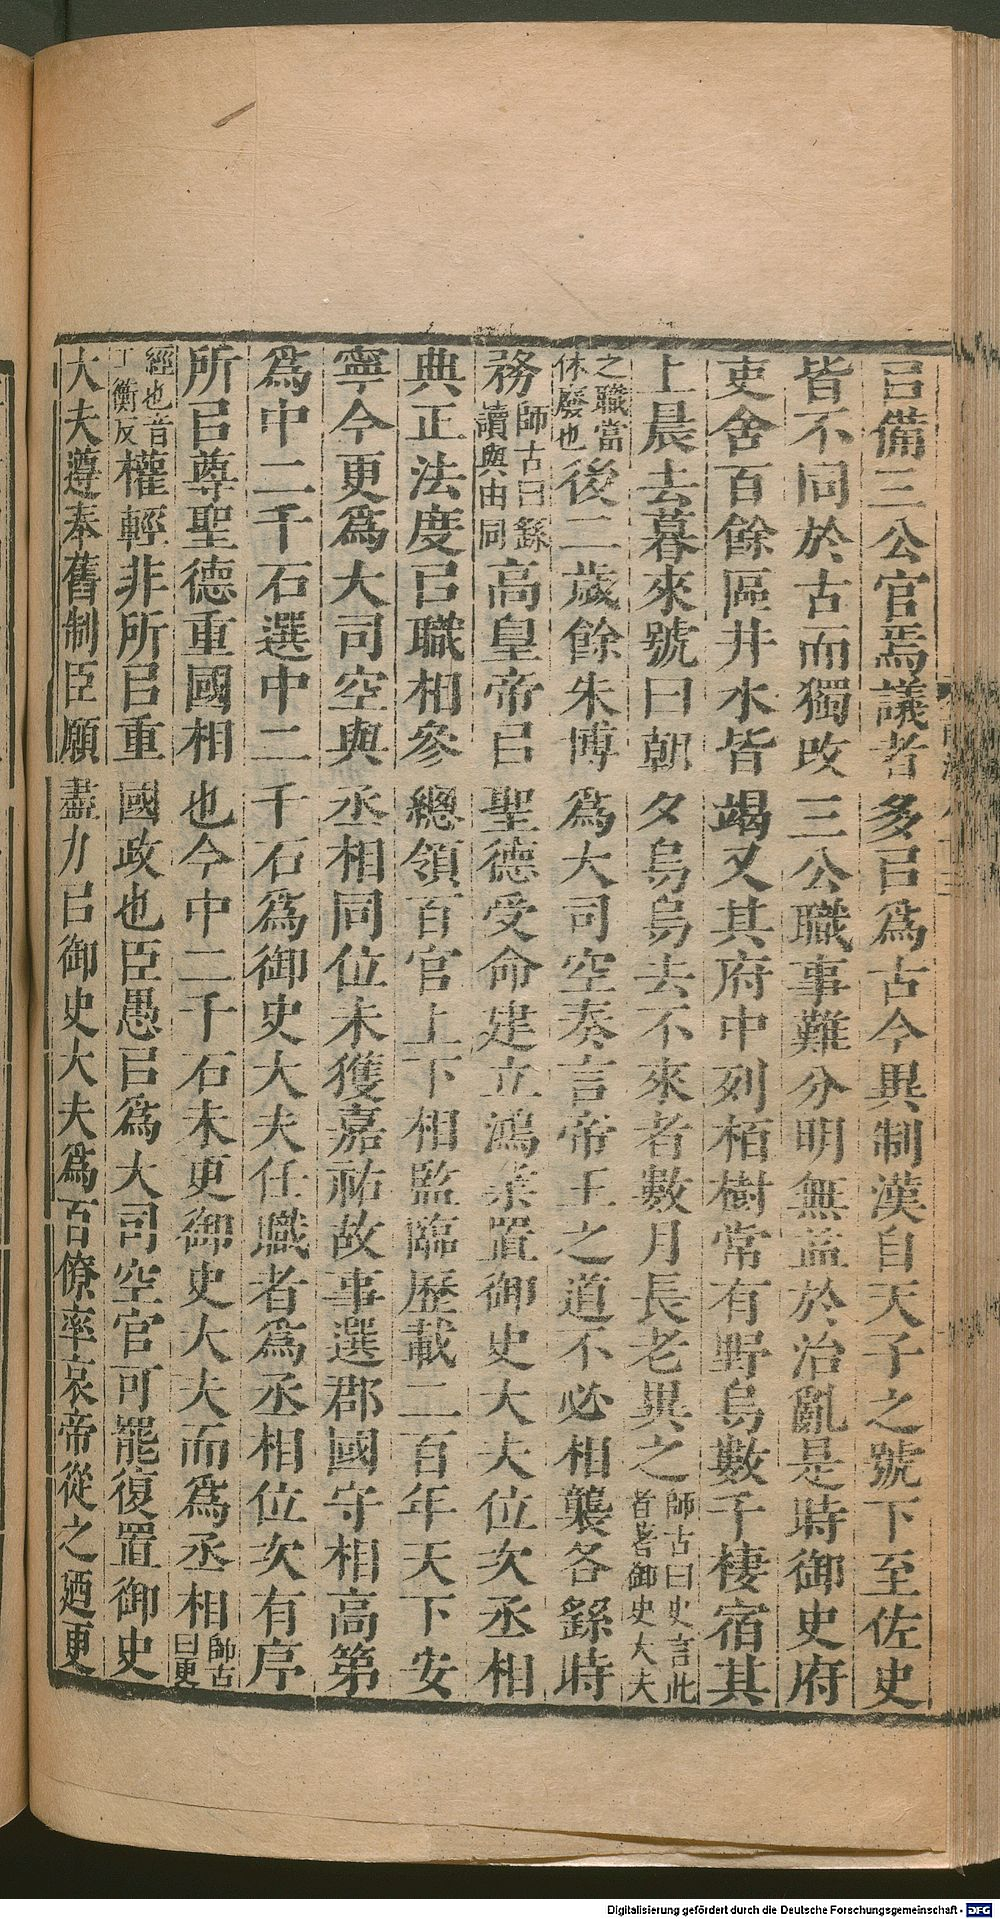 㠯備三公官焉議者多㠯為古今異制漢自天子之號下至佐史
皆不同於古而獨改三公職事難分明無益於治亂是時御史府
吏舍百餘區井水皆竭又其府中列栢樹常有野烏數千棲宿其
上晨去暮來號曰朝夕烏烏去不來者數月長老異之師古曰史言此首著御史大夫
之職當休廢也後二歲餘朱博為大司空奏言帝王之道不必相襲各繇時
務師古曰繇讀與由同高皇帝㠯聖德受命建立鴻業置御史大夫位次丞相
典正法度㠯職相參總領百官上下相監臨歷載二百年天下安
寧今更為大司空與丞相同位未獲嘉祐故事選郡國守相高第
為中二千石選中二千石為御史大夫任職者為丞相位次有序
所㠯尊聖德重國相也今中二千石未更御史大夫而為丞相師古曰更
經也音工衡反權輕非所㠯重國政也臣愚㠯為大司空官可罷復置御史
大夫遵奉舊制臣願盡力㠯御史大夫為百僚率哀帝從之廼更
Digitalisierung gefördert durch die Deutsche Forschungsgemeinschaft - DFG